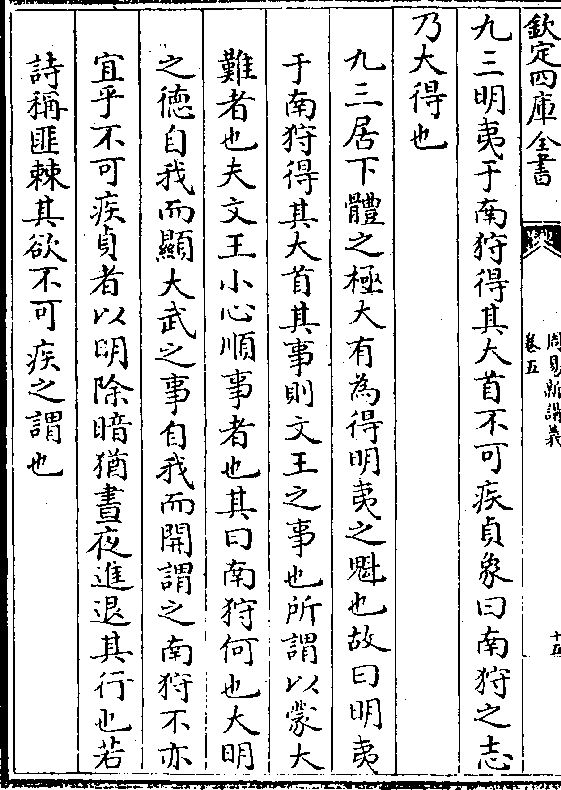 欽定四庫全書
周易新講義
卷五
十五
九三明夷于南狩得其大首不可疾貞象曰南狩之志
乃大得也
九三居下體之極大有為得明夷之魁也故曰明夷
于南狩得其大首其事則文王之事也所謂以蒙大
難者也夫文王小心順事者也其曰南狩何也大明
之德自我而顯大武之事自我而開謂之南狩不亦
宜乎不可疾貞者以明除暗猶晝夜進退其行也若
詩稱匪棘其欲不可疾之謂也